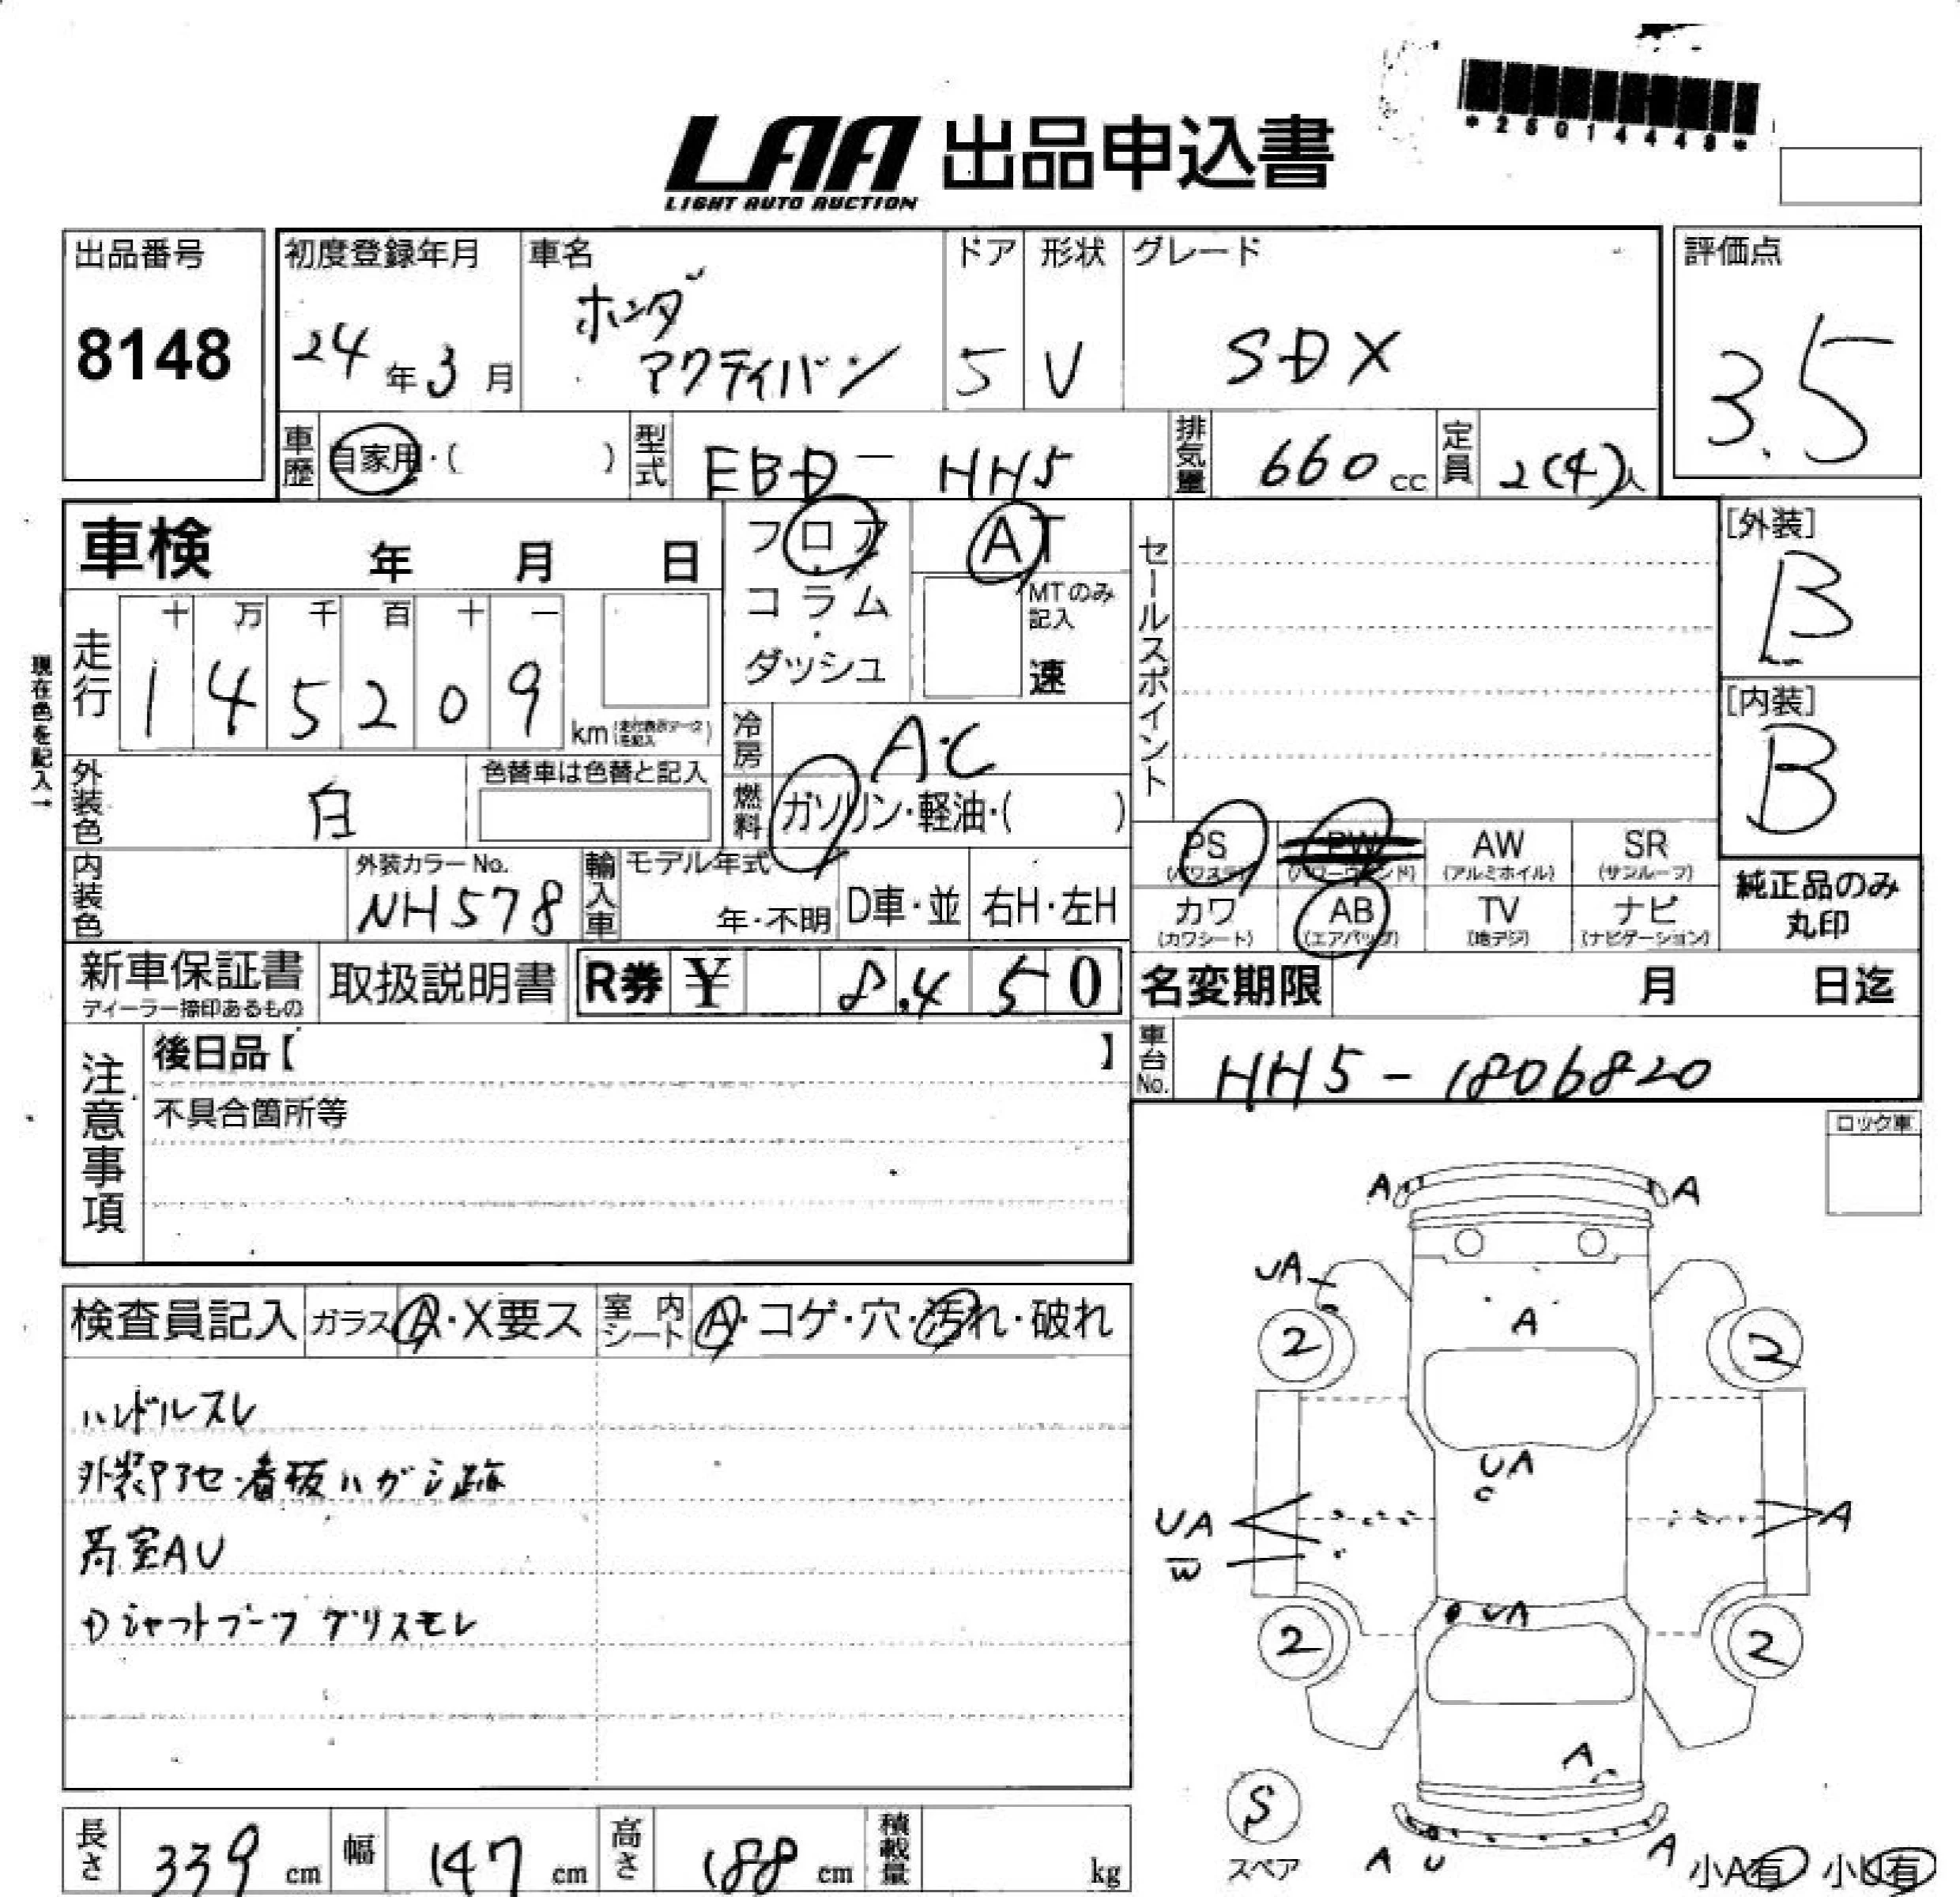 *25014449*
LAA 出品申込書
LIGHT AUTO AUCTION
出品番号
8148
初度登録年月
24年3月
車名
ホンダ
アクティバン
ドア
5
形状
V
グレード
SDX
評価点
3.5
車歴
自家用・( )
型式
EBD-HH5
排気量
660cc
定員
2(4)人
車検 年 月 日
フロア
コラム
・
ダッシュ
AT
MTのみ
記入
速
セールスポイント
[外装]
B
[内装]
B
現在色を記入→
走行
十 万 千 百 十 一
1 4 5 2 0 9
km
冷房
A・C
燃料
ガソリン・軽油・( )
外装色
白
色替車は色替と記入
内装色
外装カラーNo.
NH578
輸入車
モデル年式
年・不明
D車・並
右H・左H
PS
(パワステ)
PW
(パワーウィンド)
AW
(アルミホイル)
SR
(サンルーフ)
カワ
(カワシート)
AB
(エアバッグ)
TV
(地デジ)
ナビ
(ナビゲーション)
純正品のみ
丸印
新車保証書
ディーラー捺印あるもの
取扱説明書
R券 ¥ 8,450
名変期限 月 日迄
注意事項
後日品【 】
不具合箇所等
車台No.
HH5-1806820
ロック車
検査員記入
ガラス A・X要ス
室内シート A・コゲ・穴・汚れ・破れ
ハンドルスレ
外装アセ・看板ハガシ跡
荷室AU
Dシャフトブーツ グリスモレ
A A
UA
A
2 2
UA
C
UA A
W
UA
2 2
A
S
スペア
A U A
小A有 小U有
長さ 339cm
幅 147cm
高さ 188cm
積載量 kg